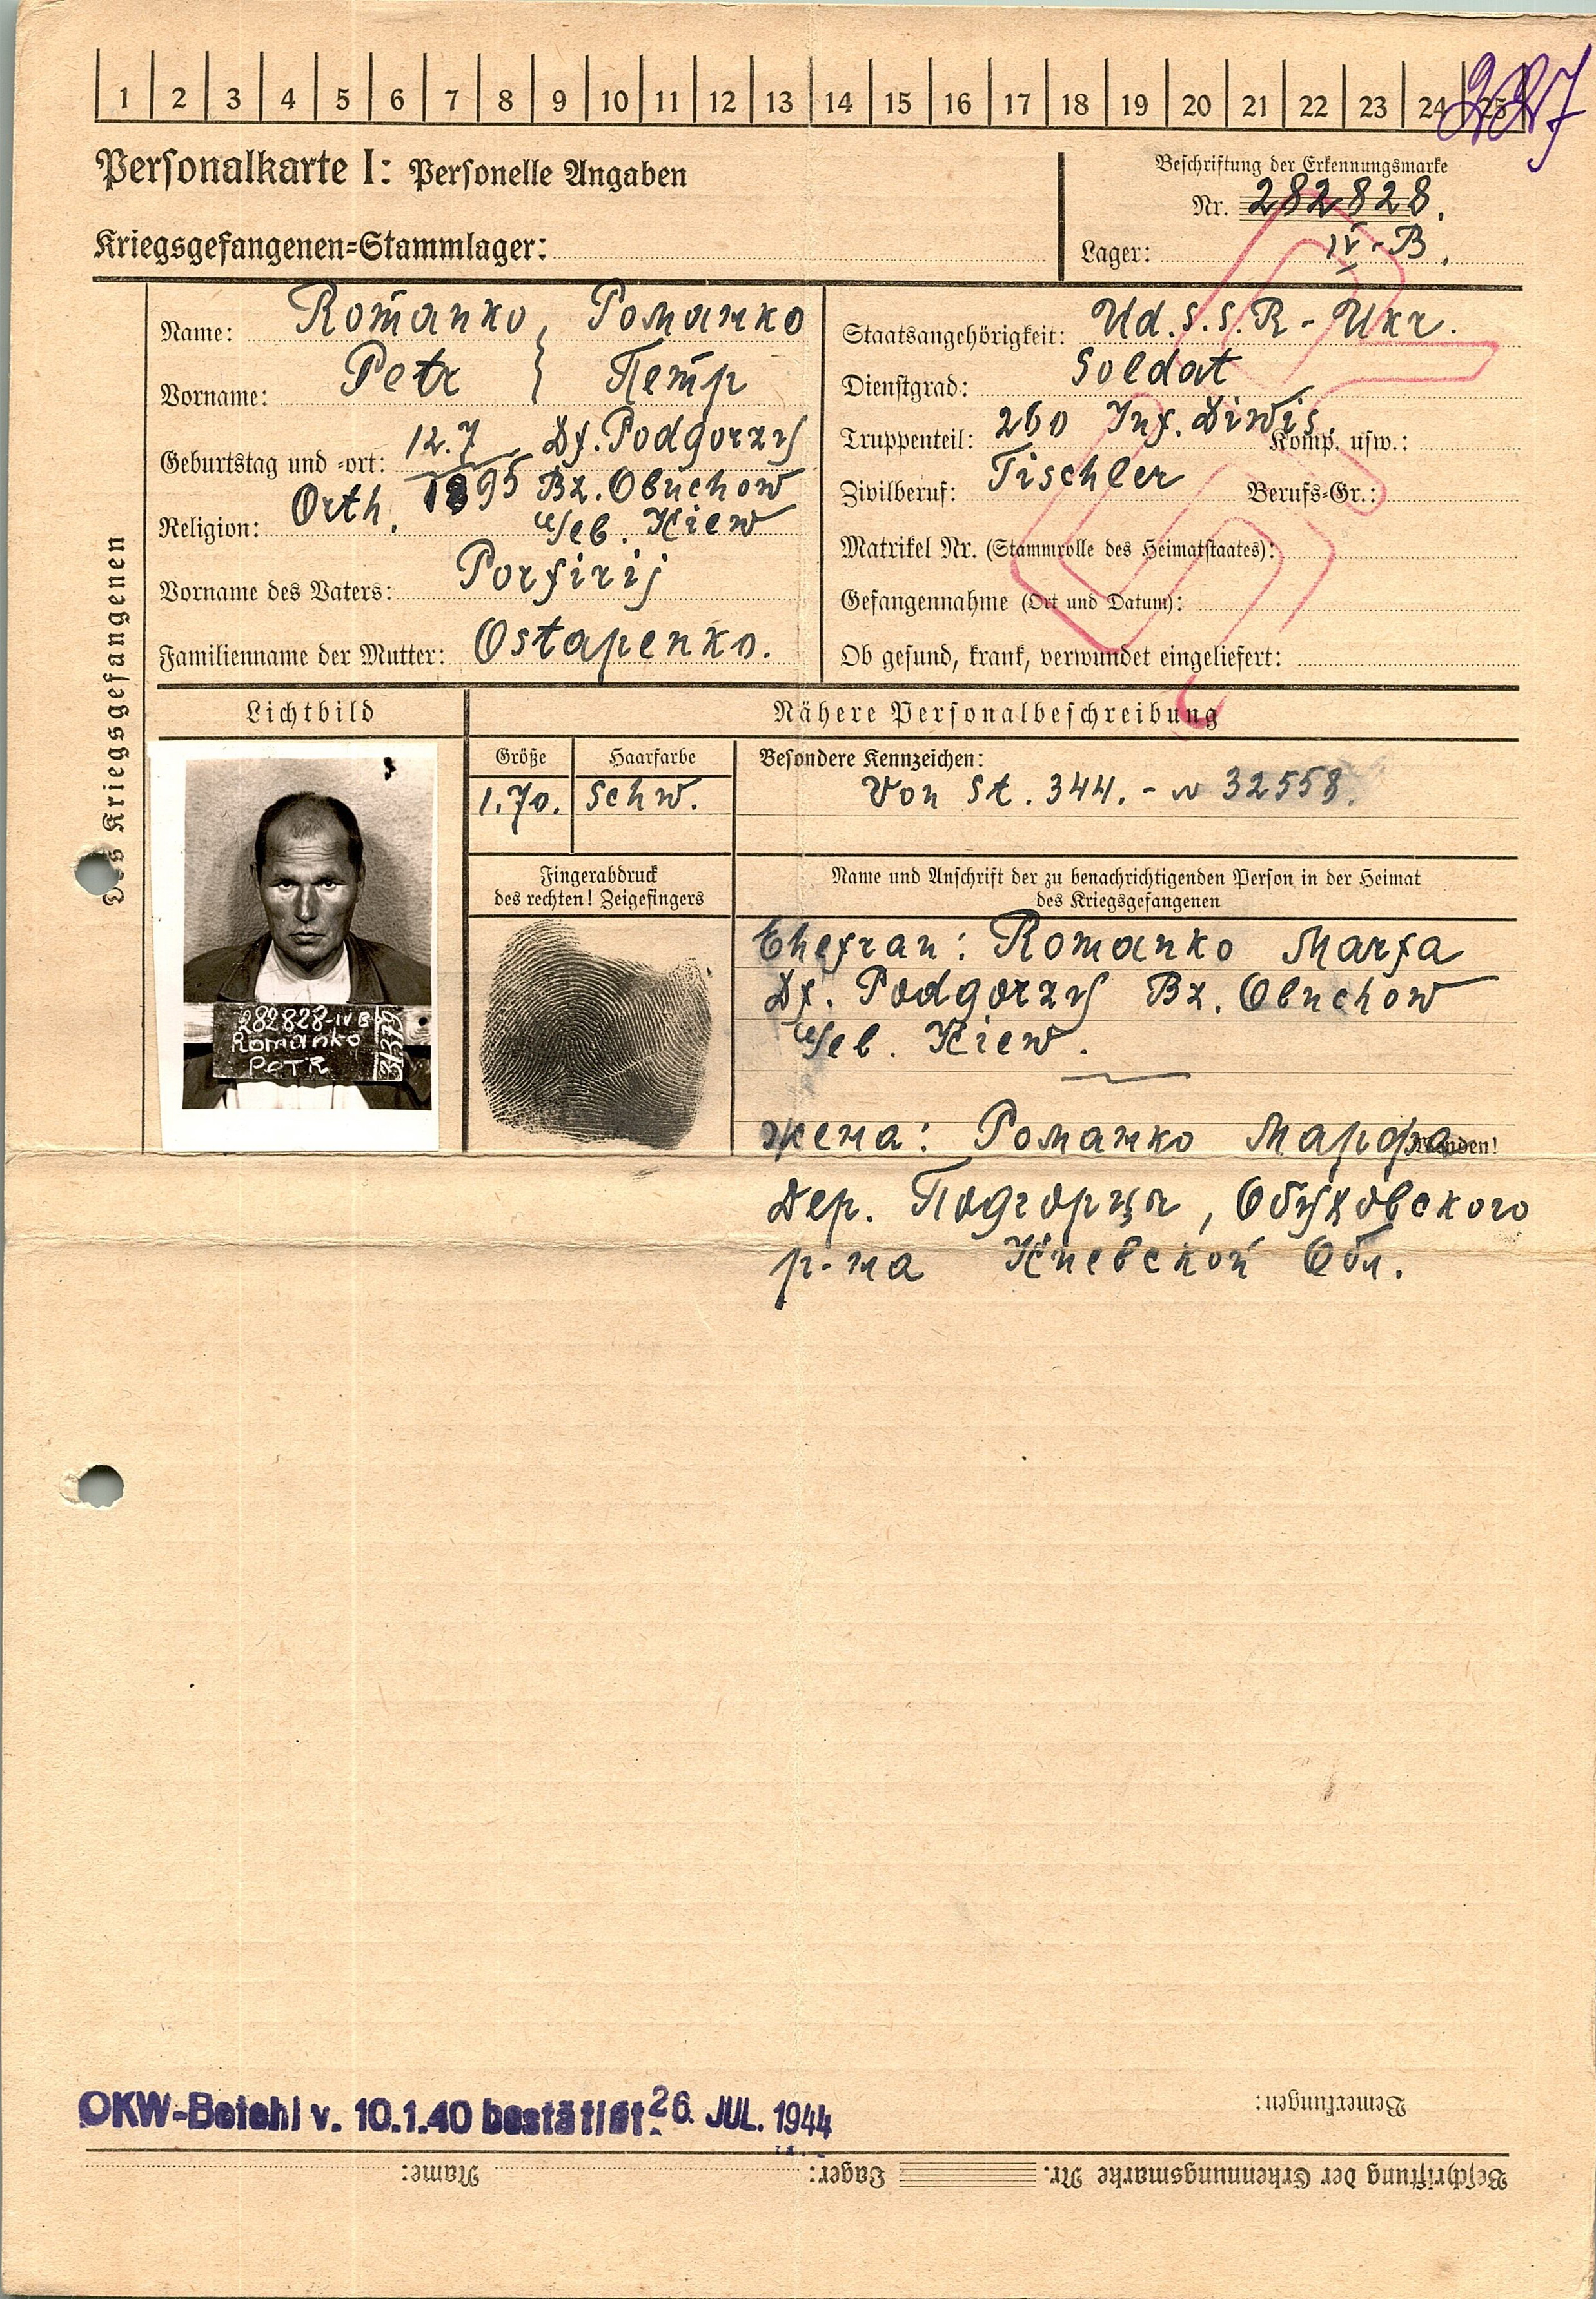 1 2 3 4 5 6 7 8 9 10 11 12 13 14 15 16 17 18 19 20 21 22 23 24 25
Personalkarte I: Personelle Angaben
Beschriftung der Erkennungsmarke
Nr. 282828.
Kriegsgefangenen-Stammlager:
Lager: IV-B.
Des Kriegsgefangenen
Name: Romanko, Романко
Vorname: Petr } Петр
Geburtstag und -ort: 12.7 1895 Df. Podgorzy
Bz. Obuchow
Religion: Orth. Geb. Kiew
Vorname des Vaters: Porfirij
Familienname der Mutter: Ostapenko.
Staatsangehörigkeit: Ud.S.S.R - Ukr.
Dienstgrad: Soldat
Truppenteil: 260 Inf. Diwis. Komp. usw.:
Zivilberuf: Tischler Berufs-Gr.:
Matrikel Nr. (Stammrolle des Heimatstaates):
Gefangennahme (Ort und Datum):
Ob gesund, krank, verwundet eingeliefert:
Lichtbild
Nähere Personalbeschreibung
Größe
Haarfarbe
1.70.
schw.
Besondere Kennzeichen:
Von St. 344. - № 32558.
Fingerabdruck
des rechten! Zeigefingers
282828-IVB
Romanko
PETR
Name und Anschrift der zu benachrichtigenden Person in der Heimat
des Kriegsgefangenen
Ehefrau: Romanko Marfa
Df. Podgorzy Bz. Obuchow
Geb. Kiew.
жена: Романко Марфа
Wenden!
Дер. Подгорцы, Обуховского
р-на Киевской Обл.
OKW-Befehl v. 10.1.40 bestätigt. 26. JUL. 1944
Bemerkungen:
Beschriftung der Erkennungsmarke Nr. Lager: Name: